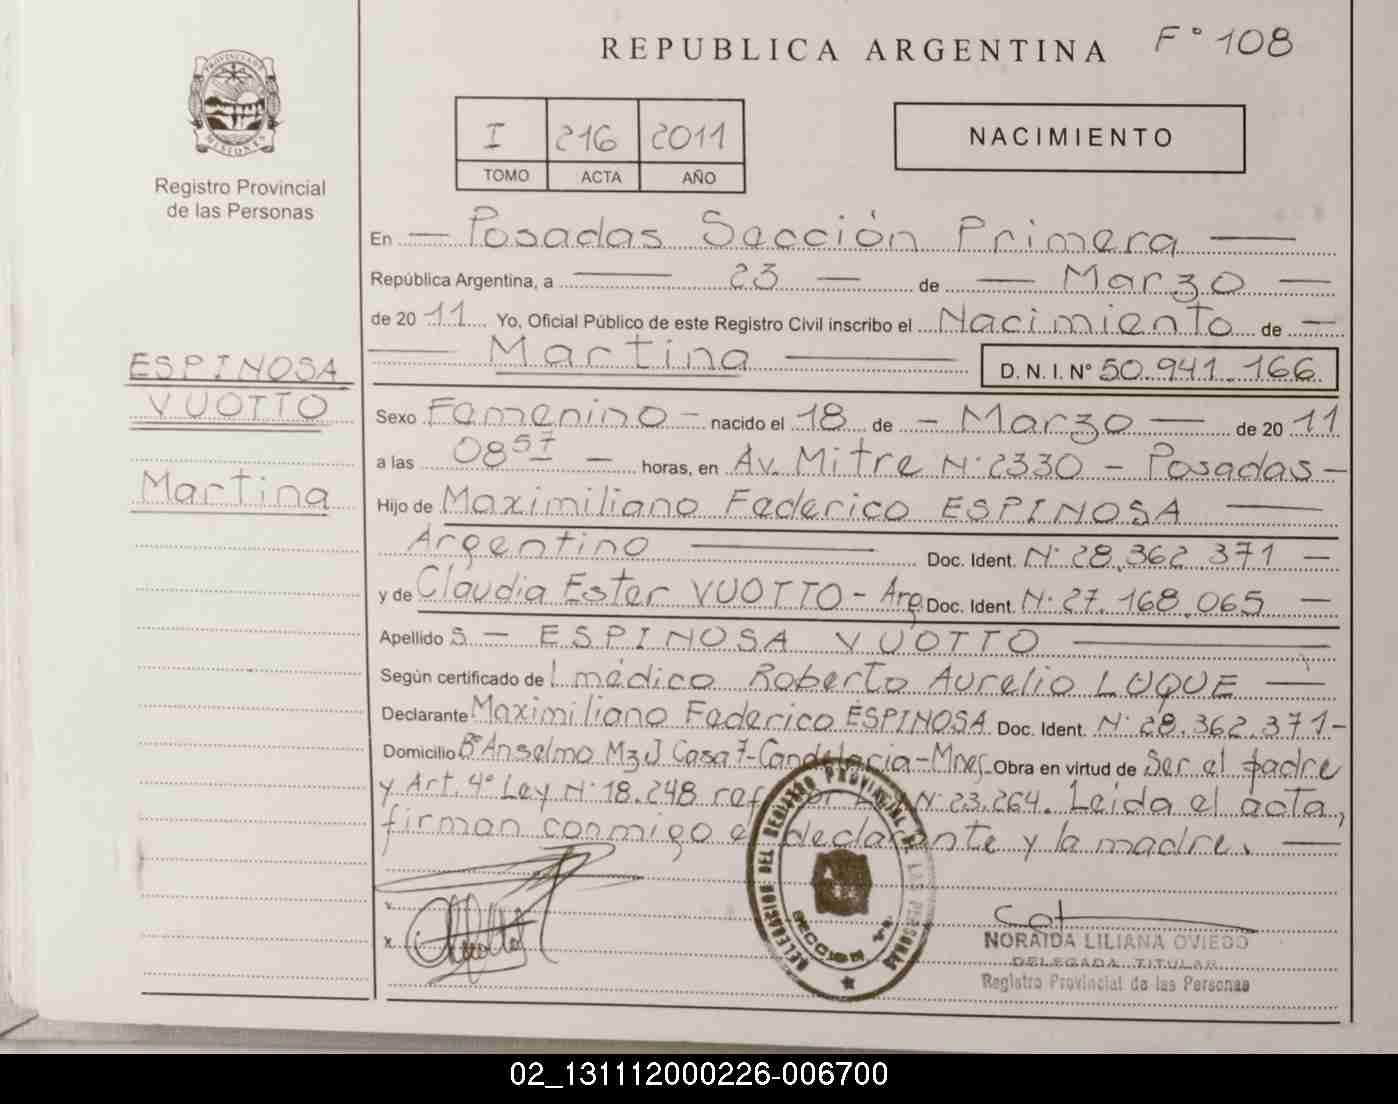 REPUBLICA ARGENTINA F° 108
PROVINCIA DE MISIONES
Registro Provincial
de las Personas
I 216 2011
TOMO ACTA AÑO
NACIMIENTO
En — Posadas Sección Primera —
República Argentina, a — 23 — de — Marzo —
de 20 11 Yo, Oficial Público de este Registro Civil inscribo el Nacimiento de —
— Martina — D. N. I. N° 50.941.166
ESPINOSA
VUOTTO
Martina
Sexo Femenino — nacido el 18 de — Marzo — de 20 11
a las 08 57 — horas, en Av. Mitre N° 2330 — Posadas —
Hijo de Maximiliano Federico ESPINOSA —
Argentino — Doc. Ident. N° 28.362.371 —
y de Claudia Ester VUOTTO — Arg. Doc. Ident. N° 27.168.065 —
Apellido s — ESPINOSA VUOTTO —
Según certificado de l médico Roberto Aurelio LUQUE —
Declarante Maximiliano Federico ESPINOSA Doc. Ident. N° 28.362.371 —
Domicilio B° Anselmo Mz J Casa 7 - Candelaria - Mnes. Obra en virtud de Ser el padre
y Art. 4° Ley N° 18.248 ref N° 23.264. Leída el acta,
firman conmigo el declarante y la madre. —
DELEGACION DEL REGISTRO PROVINCIAL DE LAS PERSONAS
SECCION 1ra.
x
x
NORAIDA LILIANA OVIEDO
DELEGADA TITULAR
Registro Provincial de las Personas
02_131112000226-006700